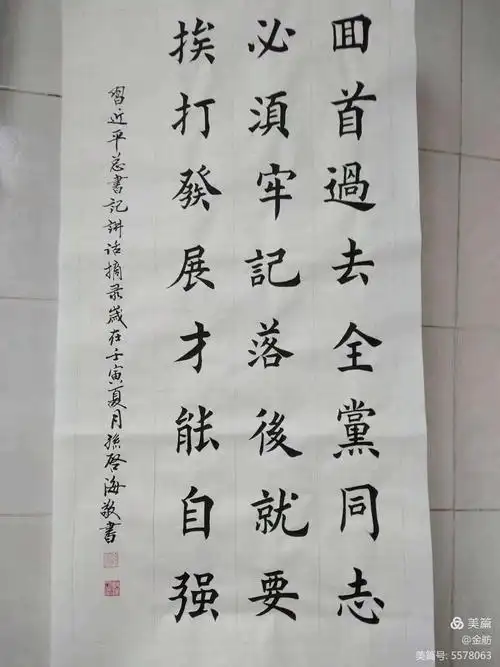 囬首過去全黨同志
必須牢記落後就要
挨打發展才能自强
習近平总書記讲话摘录歲在壬寅夏月孫啓海敬書
美篇
@金舫
美篇号: 5578063